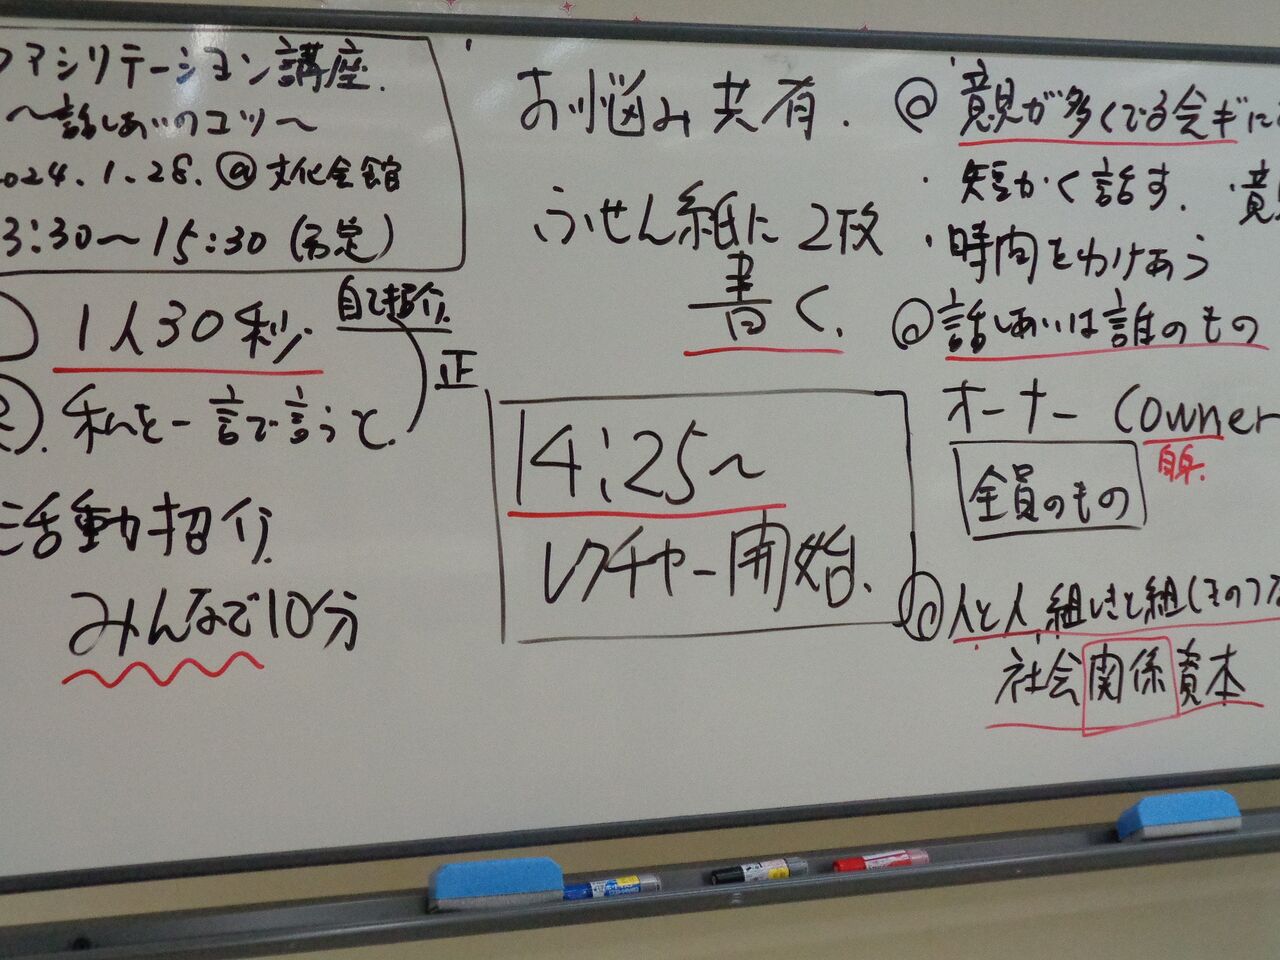 ファシリテーション講座.
〜話しあいのコツ〜
2024.1.28.@文化会館
3:30〜15:30(予定)
1人30秒
自己紹介
正
私を一言で言うと.
活動招介.
みんなで10分
お悩み共有.
ふせん紙に2枚
書く.
14:25〜
レクチャー開始.
@意見が多くでる会ギに
・短かく話す.
・時間をわけあう
@話しあいは誰のもの
オーナー(owner
自身.
全員のもの
@人と人,組しきと組しきのつな
社会関係資本